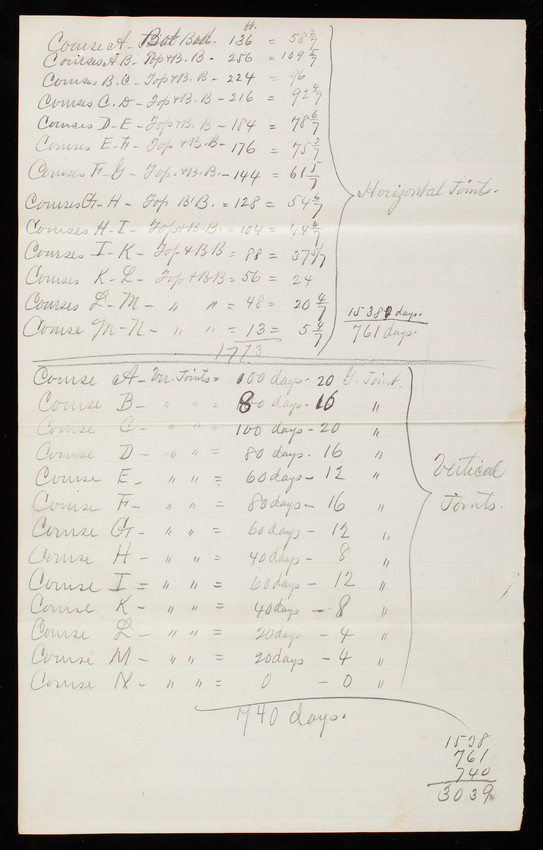 H.
Course A - Bot Bed - 136 = 58 2/7
Courses A.B - Top & B.B - 256 = 109 5/7
Courses B.C - Top & B.B - 224 = 96
Courses C.D - Top & B.B - 216 = 92 4/7
Courses D-E - Top & B.B - 184 = 78 6/7
Courses E-F - Top & B.B - 176 = 75 3/7
Courses F-G - Top & B.B. - 144 = 61 5/7
Courses G-H - Top B'B. = 128 = 54 6/7
Courses H-I - Top & B.B. = 104 = 44 4/7
Courses I-K - Top & B B = 88 = 37 5/7
Courses K-L - Top & B B = 56 = 24
Courses L-M - " " = 48 = 20 4/7
Course M-N - " " = 13 = 5 4/7
1773
Horizontal Joints.
1538 days.
761 days.
Course A - Ver. Joints = 100 days - 20 G. Joint.
Course B - " " = 80 days - 16 "
Course C - " " = 100 days - 20 "
Course D - " " = 80 days - 16 "
Course E - " " = 60 days - 12 "
Course F - " " = 80 days - 16 "
Course G - " " = 60 days - 12 "
Course H - " " = 40 days - 8 "
Course I = " " = 60 days - 12 "
Course K - " " = 40 days - 8 "
Course L - " " = 20 days - 4 "
Course M - " " = 20 days - 4 "
Course N - " " = 0 - 0 "
Vertical
Joints.
740 days.
1538
761
740
3039